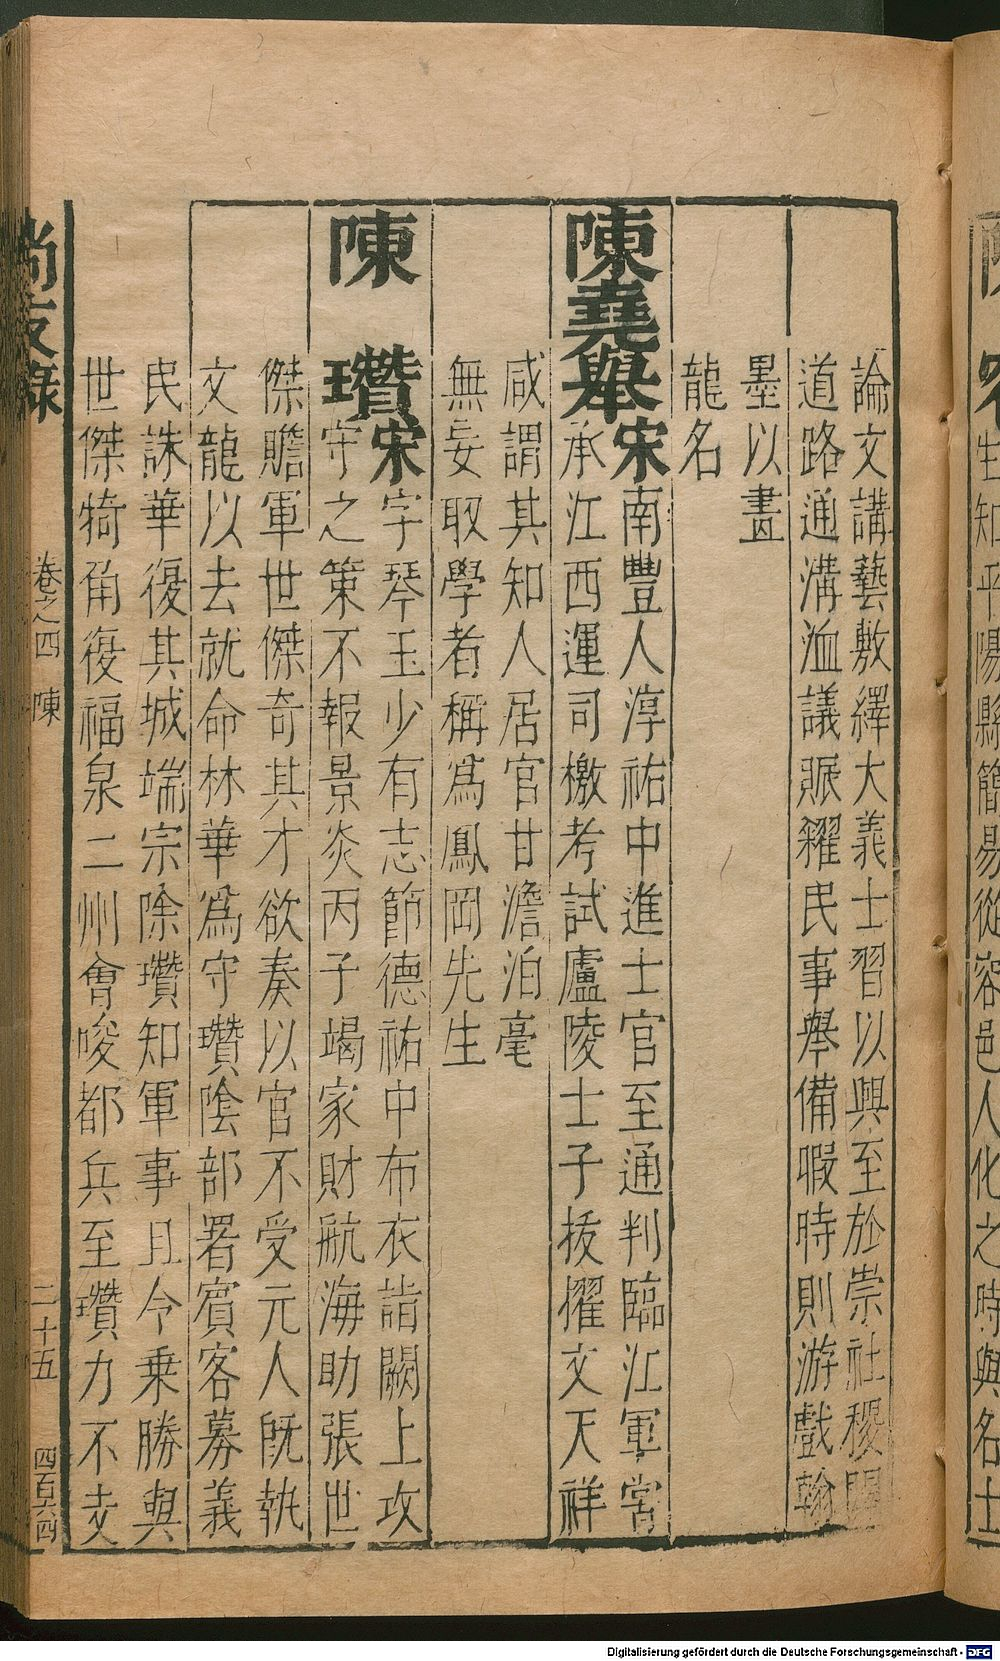 論文講藝敷繹大義士習以興至於崇社稷闢
道路通溝洫議賑糴民事舉備暇時則游戲翰
墨以畫
龍名
陳堯舉宋南豐人淳祐中進士官至通判臨江軍嘗
承江西運司檄考試廬陵士子拔擢文天祥
咸謂其知人居官甘澹泊毫
無妄取學者稱爲鳳岡先生
陳瓚宋字琴玉少有志節德祐中布衣詣闕上攻
守之策不報景炎丙子竭家財航海助張世
傑贍軍世傑奇其才欲奏以官不受元人旣執
文龍以去就命林華爲守瓚陰部署賓客募義
民誅華復其城端宗除瓚知軍事且令乗勝與
世傑犄角復福泉二州會唆都兵至瓚力不支
尚友錄
卷之四 陳
二十五
四百六四
生知平陽縣簡易從容邑人化之時與名士
Digitalisierung gefördert durch die Deutsche Forschungsgemeinschaft - DFG